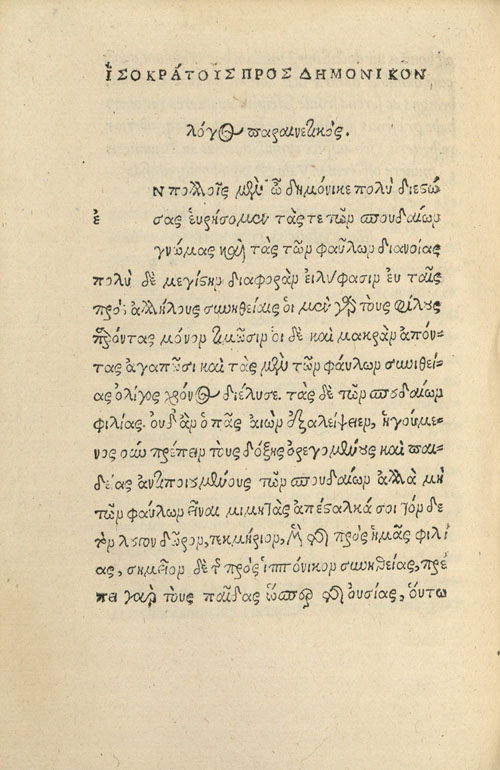 ἸΣΟΚΡΆΤΟΥΣ ΠΡΟΣ ΔΗΜΟΝΙΚΟΝ
λόγος παραινετικός.
Ν πολλοῖς μὲν ὦ δημόνικε πολὺ διεςώ
ἐ σας εὑρήσομεν τάς τε τῶν σπουδαίων
γνώμας καὶ τὰς τῶν φαύλων διανοίας
πολὺ δὲ μεγίςην διαφορὰν εἰλήφασιν ἐν ταῖς
πρὸς ἀλλήλους συνηθείαις οἱ μὲν γὰρ τοὺς φίλους
παρόντας μόνον τιμῶσιν οἱ δὲ καὶ μακρὰν ἀπόν-
τας ἀγαπῶσι καὶ τὰς μὲν τῶν φαύλων συνηθεί-
ας ὀλίγος χρόνος διέλυσε. τὰς δὲ τῶν σπουδαίων
φιλίας. οὐδ' ἂν ὁ πᾶς αἰὼν ἐξαλείψειεν, ἡγούμε-
νος οὖν πρέπειν τοὺς δόξης ὀρεγομένους καὶ παι-
δείας ἀντιποιουμένους τῶν σπουδαίων ἀλλὰ μὴ
τῶν φαύλων εἶναι μιμητὰς ἀπέςαλκά σοι τόν δε
τὸν λόγον δῶρον, τεκμήριον, τῆς πρὸς ἡμᾶς φιλί
ας, σημεῖον δὲ τῆς πρὸς ἱππόνικον συνηθείας, πρέ
πει γὰρ τοὺς παῖδας ὥσπερ τῆς οὐσίας, οὕτω